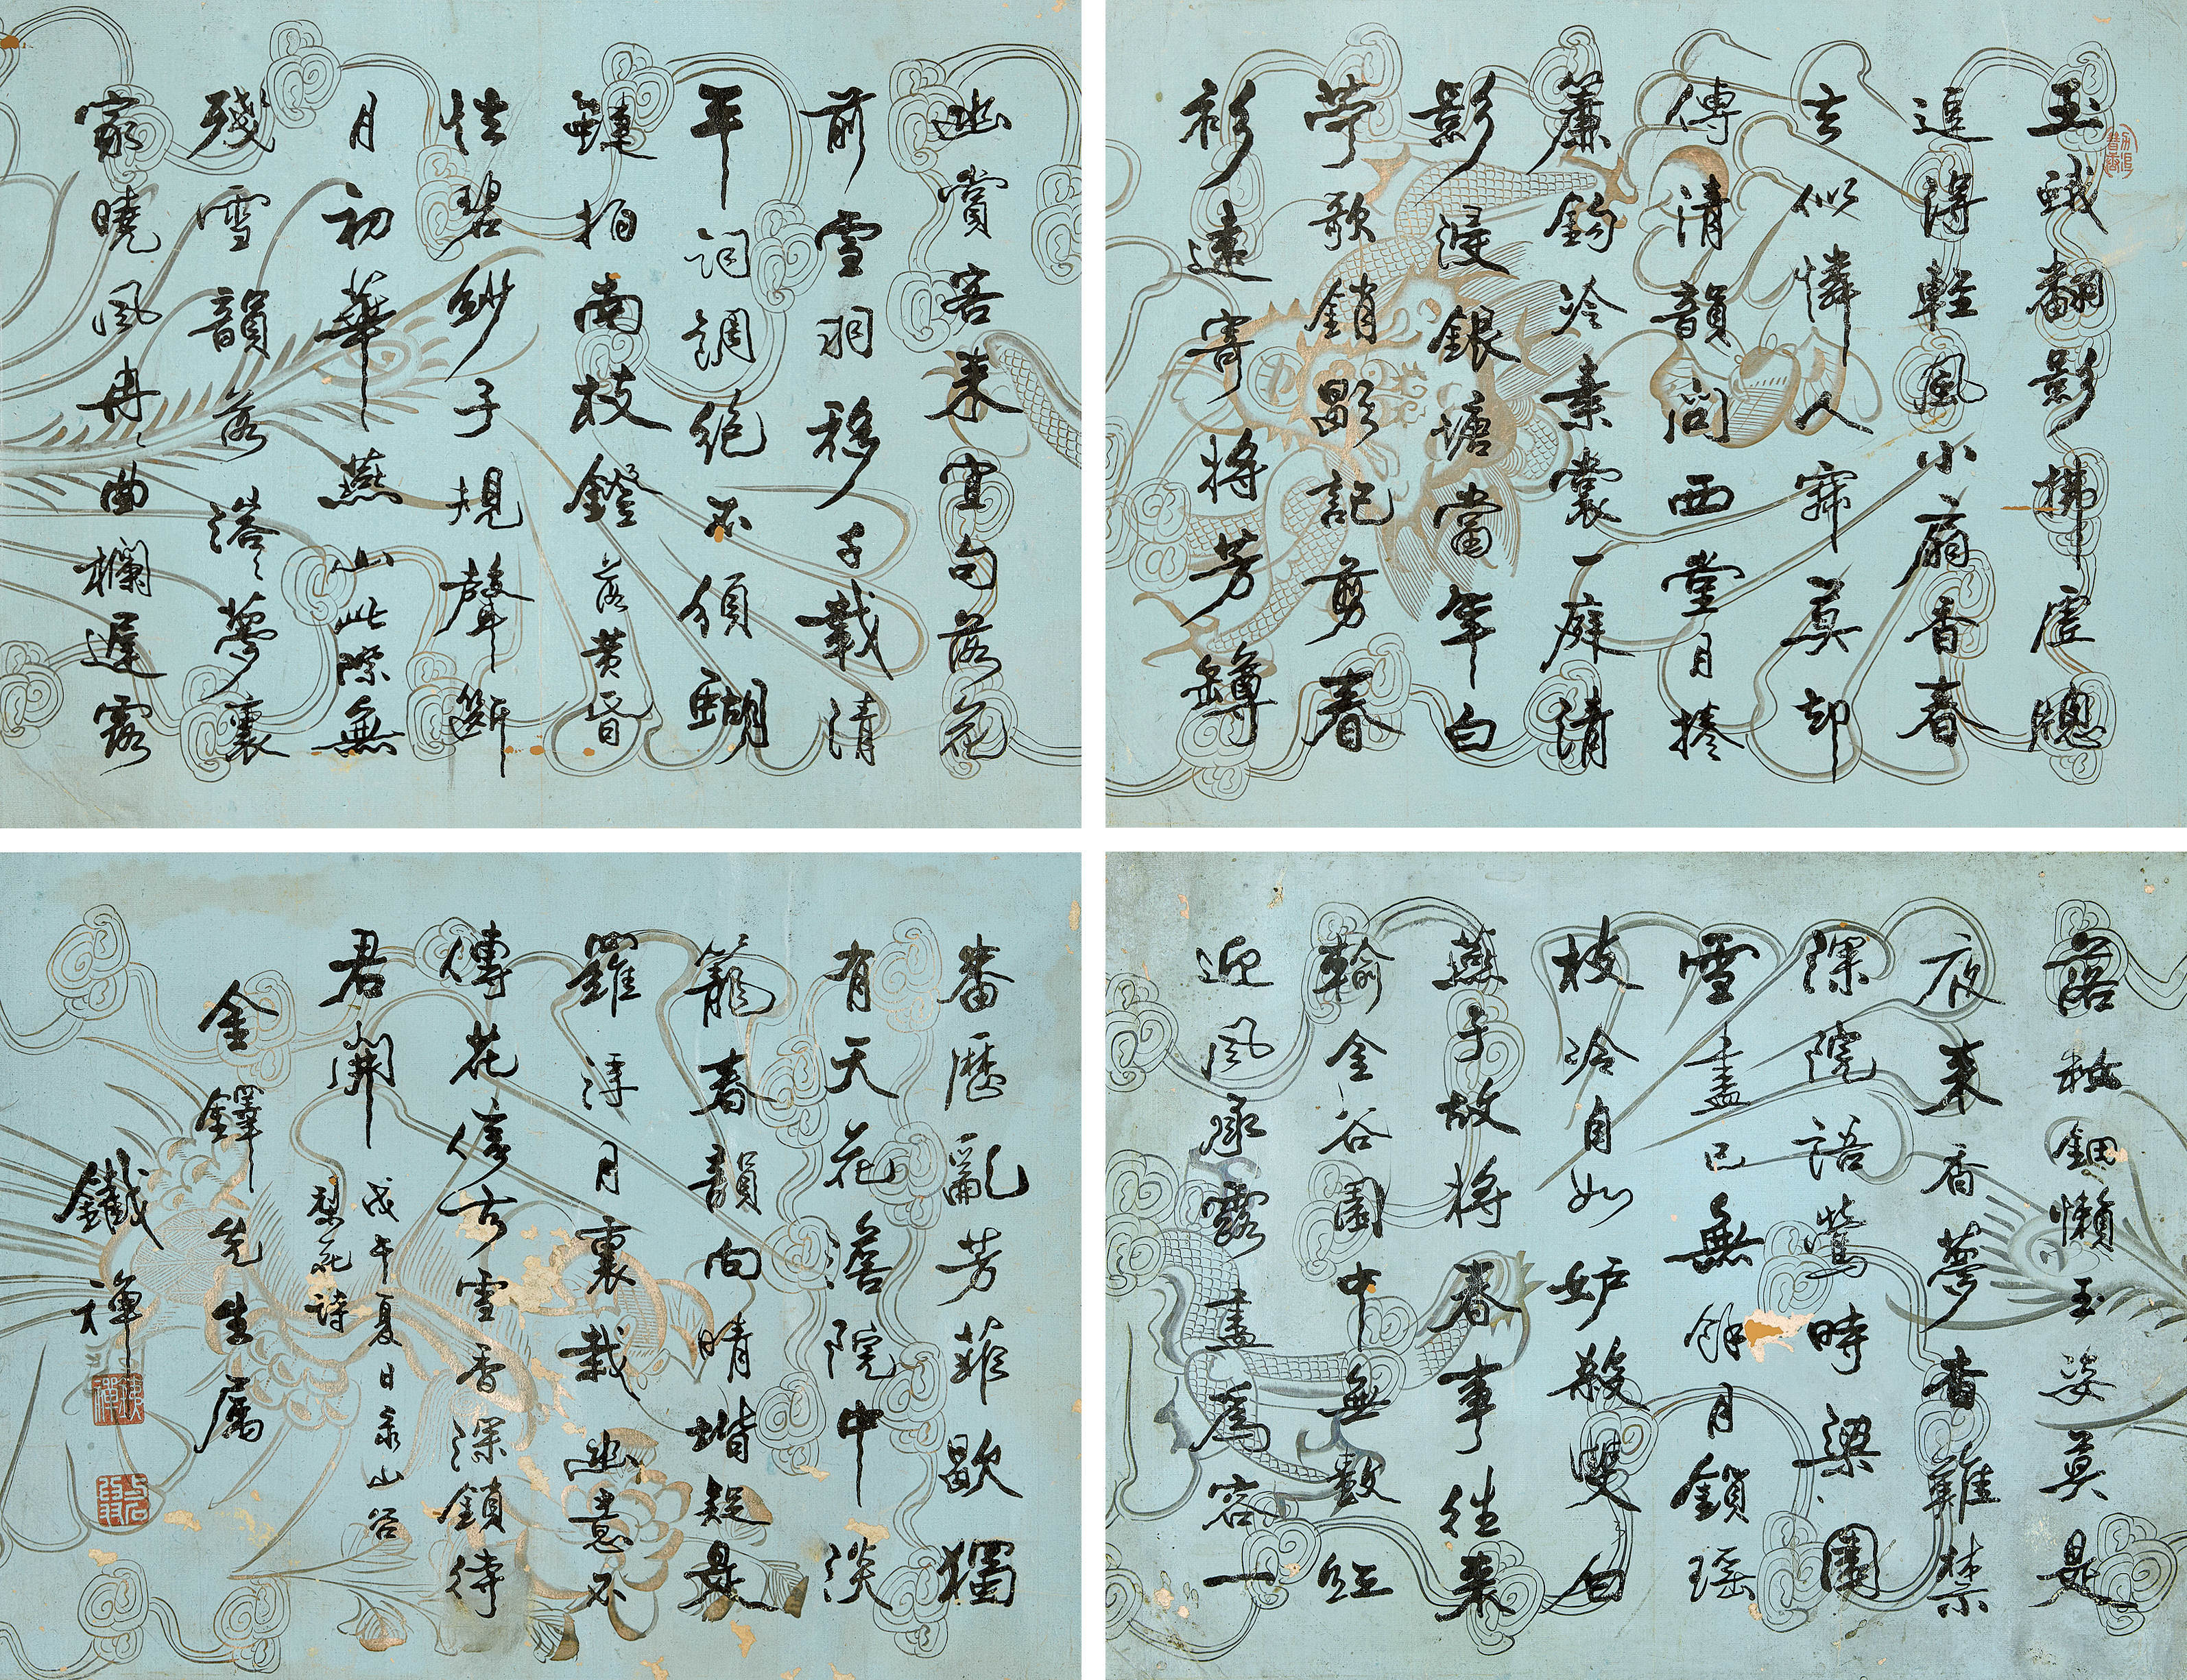 玉蛾翻影拂虛牕
追薄輕風小扇香春
去似憐人寂莫却
傳清韻問西堂月捲
簾鉤冷素裳一庭清
影浸銀塘當年白
苧歌銷歇記剪春
衫遠寄將芳罇
幽賞客来宜句落花
前雪羽移千載清
平詞調絕不須蝴
蝶拍南枝鐙落黄昏
怯碧紗子規聲斷
月初華燕山此際無
殘雪韻落溶〻夢裏
家曉風冉〻曲欄遲露
落粧鈿懶玉姿莫是
夜来香夢杳難禁
深院語鶯時梁園
雪盡已無餘月鎖瑶
枝冷自如妒殺雙白
燕子故將春事往来
輸金谷園中無數紅
迎風承露盡為容一
番歷亂芳菲歇獨
有天花澹院中淡
籠春韻向晴堦疑是
羅浮月裏栽幽意不
傳花信去雪香深鎖待
君開
戊午夏日录山谷
梨花詩
金鐸先生屬
鐵禪
鐵禪